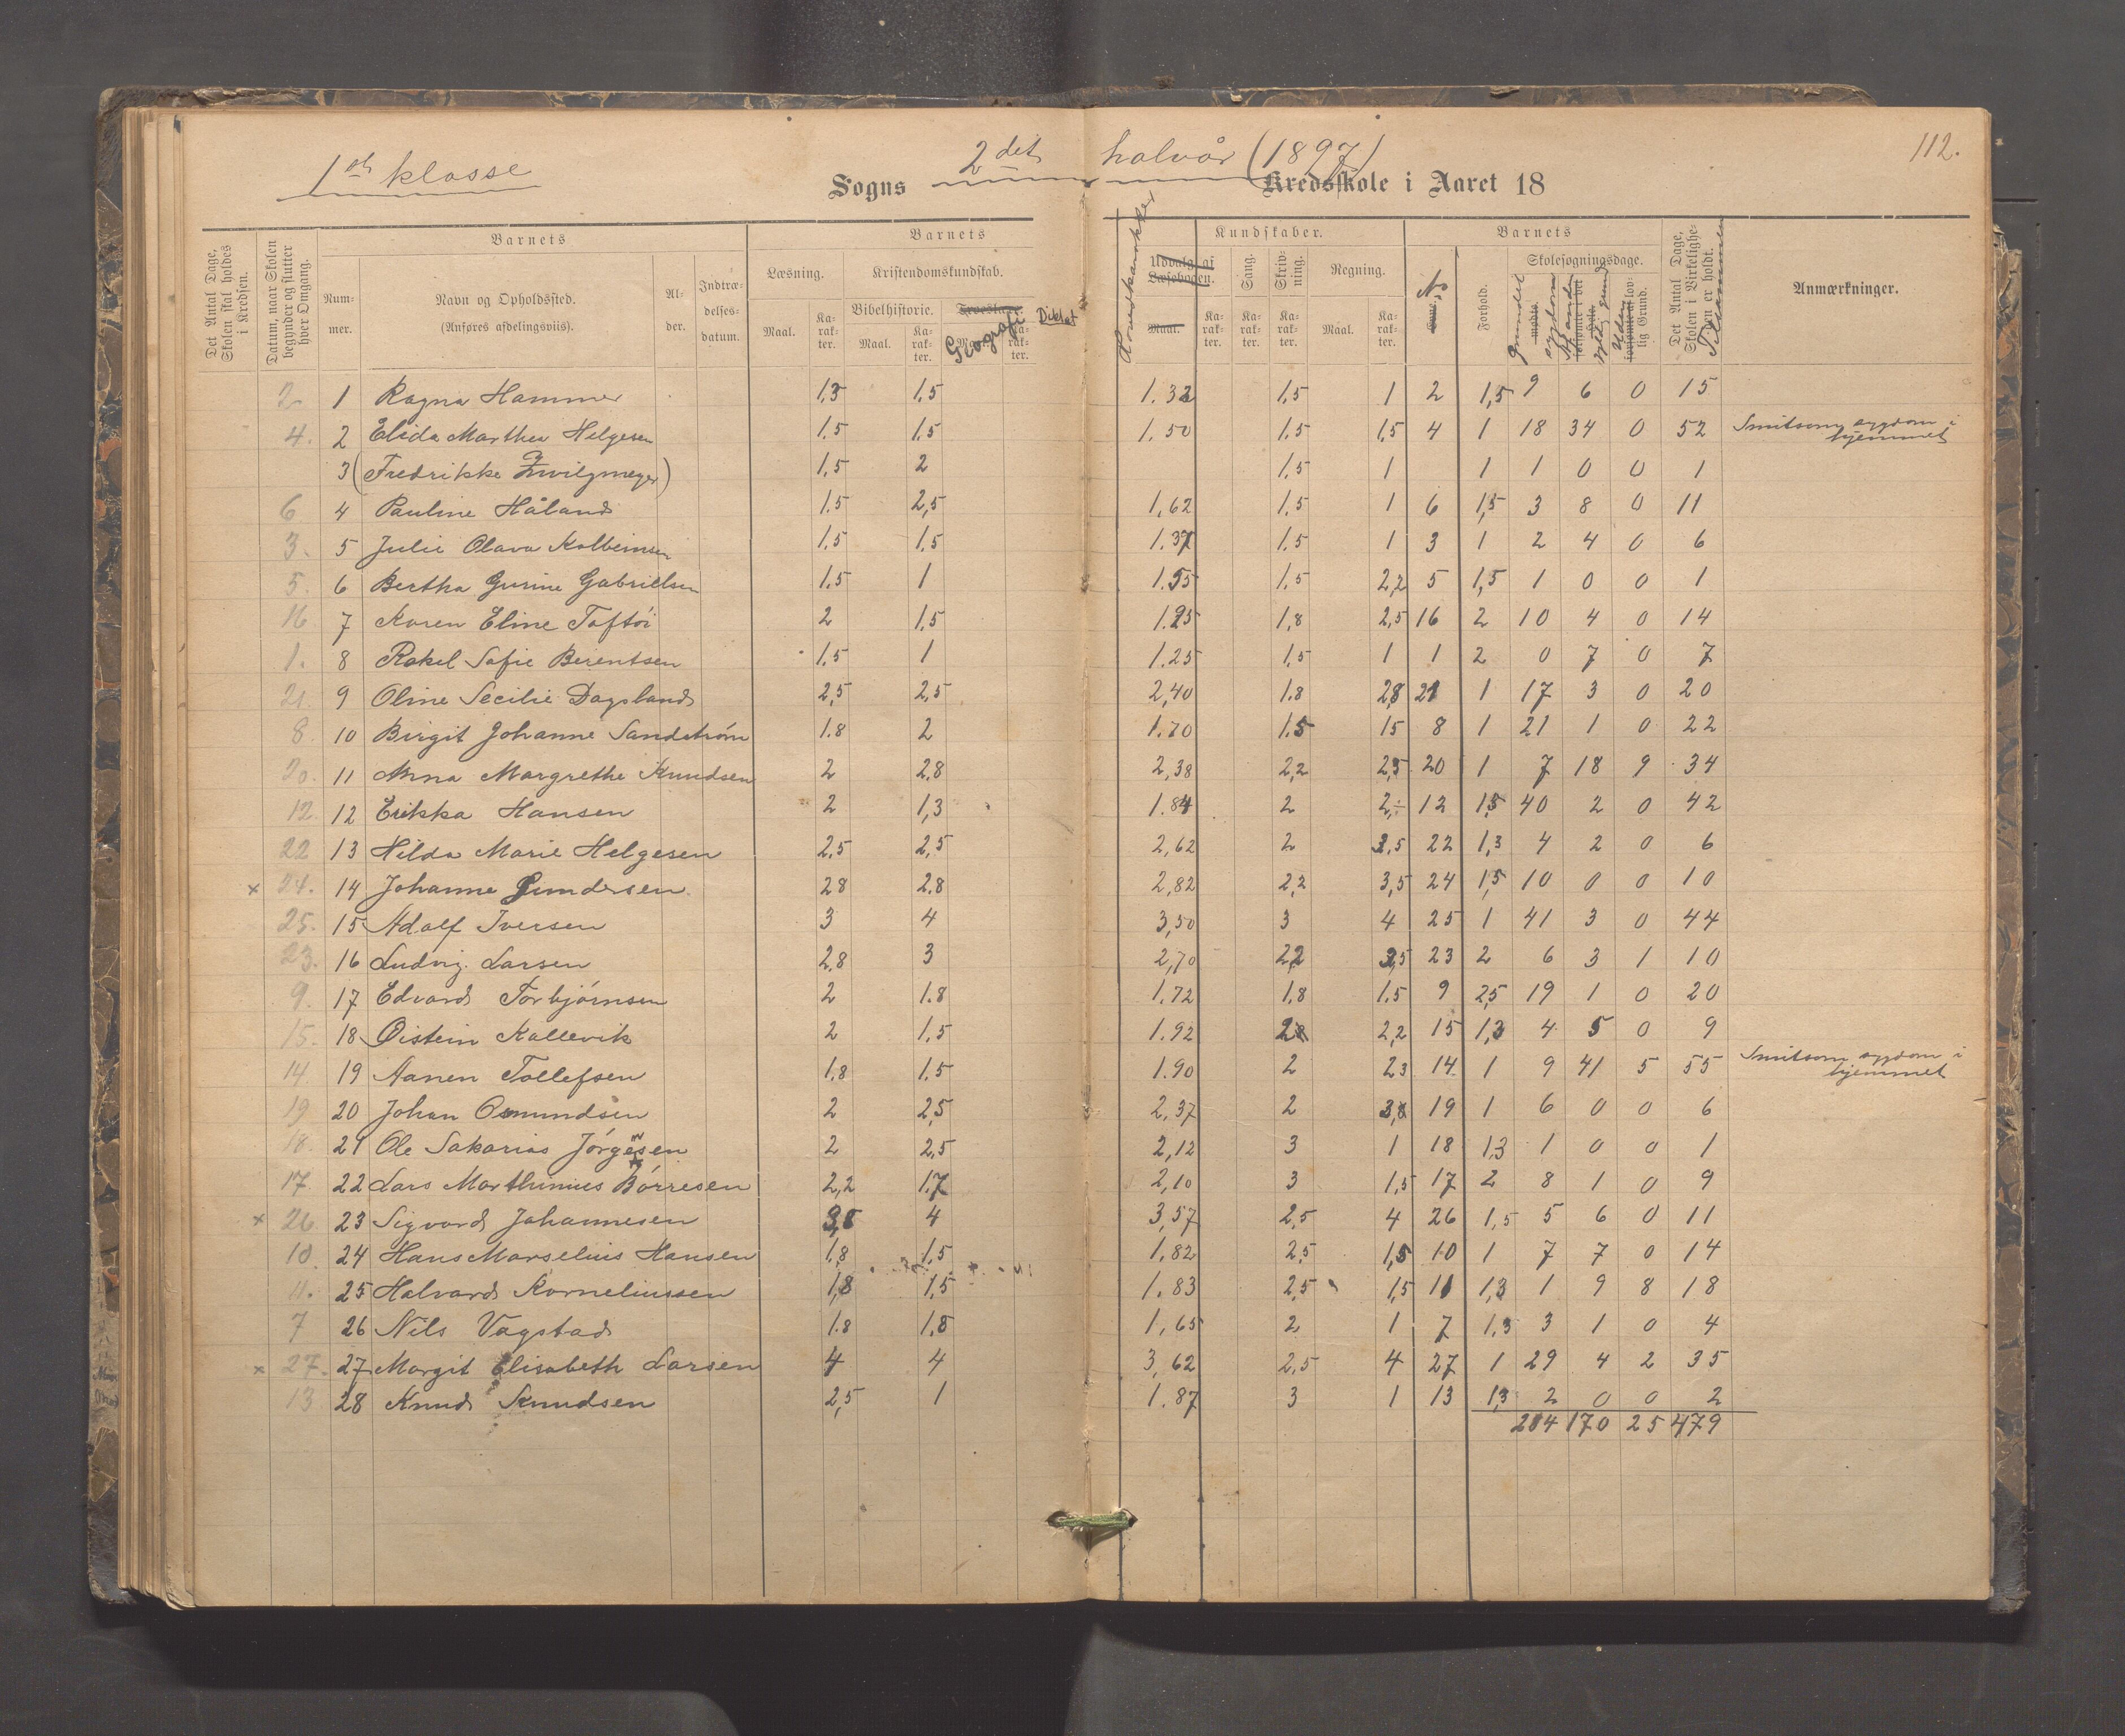 1ste klasse 2det halvår (1897) 112.
Sogns Kredsskole i Aaret 18
Det Antal Dage, Skolen skal holdes i Kredsen.
Datum, naar Skolen begynder og slutter hver Omgang.
Barnets
Nummer.
Navn og Opholdssted.
(Anføres afdelingsviis).
Alder.
Indtrædelsesdatum.
Barnets
Læsning.
Maal.
Karakter.
Kristendomskundskab.
Bibelhistorie.
Maal.
Karakter.
Troeslære.
Geografi
Maal.
Karakter.
Diktat
Hovedkarakter
Kundskaber.
Udvalg af Læsebogen.
Maal.
Karakter.
Sang.
Karakter.
Skrivning.
Karakter.
Regning.
Maal.
Karakter.
Barnets
No
Forhold.
Skolesøgningsdage.
mødte.
Grundet sygdom
Uden
forsømte af lovlig Grund.
Det Antal Dage, Skolen i Virkeligheden er holdt.
Tilsammen
Anmærkninger.
2 1 Ragna Hammer 1,3 1,5 1.32 1,5 1 2 1,5 9 6 0 15
4. 2 Elida Marthea Helgesen 1,5 1,5 1.50 1,5 1,5 4 1 18 34 0 52 Smitsom sygdom i hjemmet
3 (Fredrikke Zwilgmeyer) 1,5 2 1,5 1 1 1 0 0 1
6 4 Pauline Håland 1,5 2,5 1,62 1,5 1 6 1,5 3 8 0 11
3. 5 Julie Olava Kolbeinsen 1,5 1,5 1.37 1,5 1 3 1 2 4 0 6
5. 6 Bertha Gurine Gabrielsen 1,5 1 1.55 1,5 2,2 5 1,5 1 0 0 1
16 7 Karen Eline Toftöi 2 1,5 1.95 1,8 2,5 16 2 10 4 0 14
1. 8 Rakel Sofie Berentsen 1,5 1 1.25 1,5 1 1 2 0 7 0 7
21. 9 Oline Secilie Dagsland 2,5 2,5 2,40 1.8 2,8 21 1 17 3 0 20
8. 10 Birgit Johanne Sandström 1.8 2 1.70 1.5 15 8 1 21 1 0 22
20. 11 Anna Margrethe Knudsen 2 2,8 2,38 2,2 2,5 20 1 7 18 9 34
12. 12 Erikka Hansen 2 1,3 1.84 2 2,÷ 12 1,5 40 2 0 42
22 13 Hilda Marie Helgesen 2,5 2,5 2,62 2 3,5 22 1,3 4 2 0 6
x 24. 14 Johanne Gundersen 28 2,8 2,82 2,2 3,5 24 1,5 10 0 0 10
25. 15 Adolf Iversen 3 4 3,50 3 4 25 1 41 3 0 44
23. 16 Ludvig Larsen 2,8 3 2,70 2,2 3,5 23 2 6 3 1 10
9. 17 Edvard Torbjörnsen 2 1.8 1.72 1,8 1.5 9 2,5 19 1 0 20
15. 18 Øistein Kallevik 2 1,5 1.92 2,2 15 1,3 4 5 0 9
14 19 Aanen Tollefsen 1,8 1,5 1.90 2 23 14 1 9 41 5 55 Smitsom sygdom i hjemmet
19 20 Johan Osmundsen 2 2,5 2,37 2 3,8 19 1 6 0 0 6
18. 21 Ole Sakarias Jörgensen 2 2,5 2,12 3 1 18 1,3 1 0 0 1
17. 22 Lars Marthinius Börresen 2,2 1.7 2,10 3 1,5 17 2 8 1 0 9
x 26 23 Sigvard Johannesen 4 3,57 2,5 4 26 1,5 5 6 0 11
10. 24 Hans Marselius Hansen 1,8 1,5 1,82 2,5 1,5 10 1 7 7 0 14
11. 25 Halvard Korneliussen 1,8 1,5 1.83 2,5 1,5 11 1,3 1 9 8 18
7 26 Nils Vagstad 1.8 1,8 1,65 2 1 7 1,3 3 1 0 4
x 27. 27 Margit Elisabeth Larsen 4 4 3,62 2,5 4 27 1 29 4 2 35
13 28 Knud Knudsen 2,5 1 1.87 3 1 13 1,3 2 0 0 2
284 170 25 479